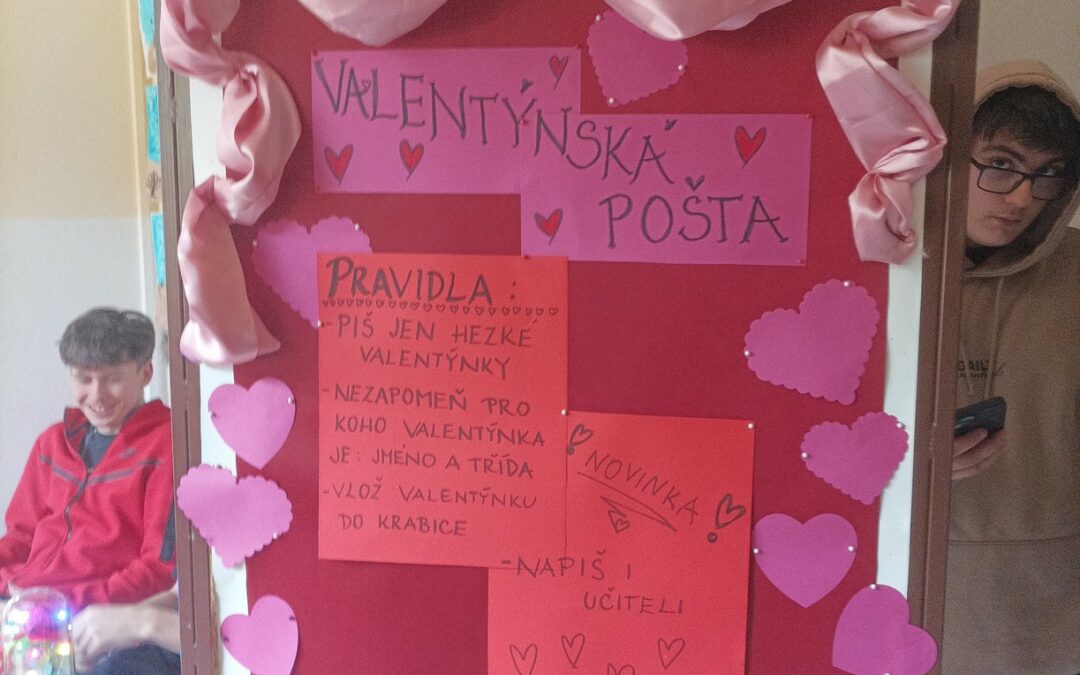 VALENTÝNSKÁ
POŠTA
PRAVIDLA:
- PIŠ JEN HEZKÉ
VALENTÝNKY
- NEZAPOMEŇ PRO
KOHO VALENTÝNKA
JE: JMÉNO A TŘÍDA
- VLOŽ VALENTÝNKU
DO KRABICE
NOVINKA
- NAPIŠ I
UČITELI